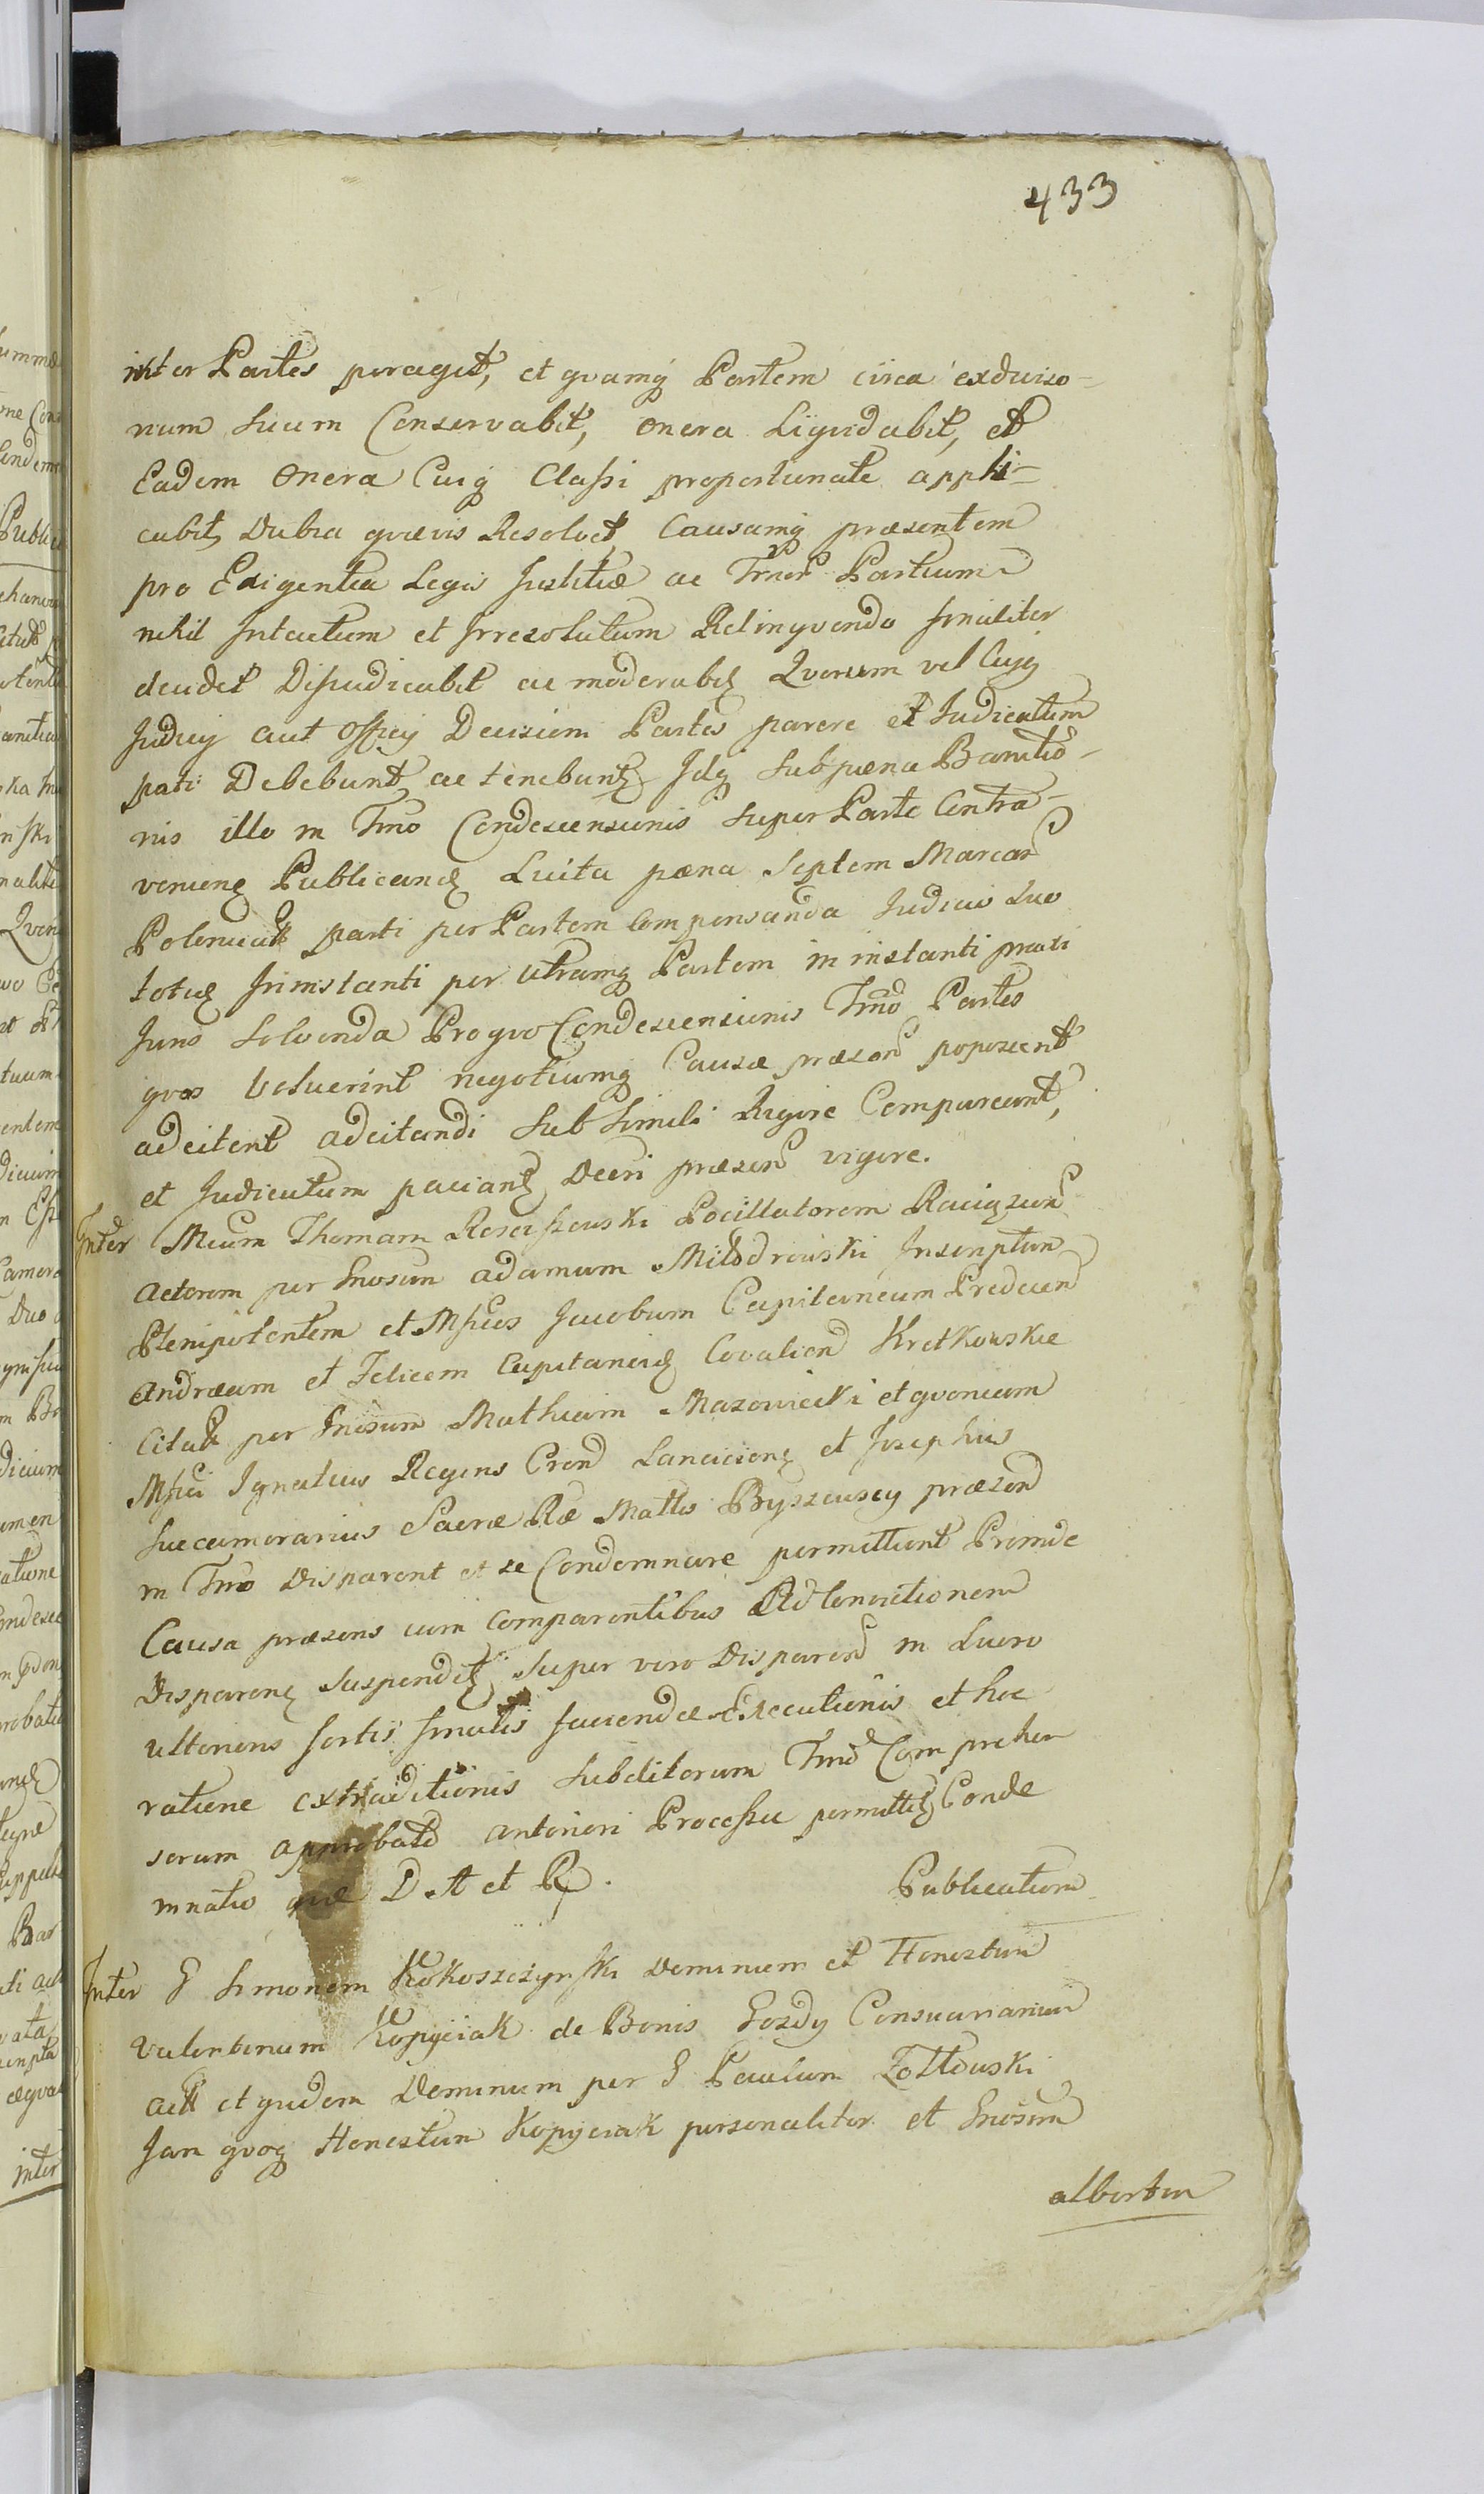 433
inter Partes peraget, et quamq Partem circa exdiviso-
num suum Conservabit, onera Liquidabit, et
Eadem onera Cuiq Classi proportionate appli-
cabit, Dubia quævis Resolvet, Causamq præsentem
pro Exigentia Legis Justitiæ ac Partium
nihil Intactum et Irresolutum Relinquendo finaliter
decidet Dijudicabit ac moderab Quorum vel Cujq
Judicij aut Officij Decisioni Partes parere et Judicatum
pati Debebunt ac tenebunt Idq sub pæna Bannitio-
nis illo in Tmo Condescensionis super Parte Contra-
venien Publicand Luita pæna Septem Marcar
Polonical parti per Partem Compensanda Judicio suo
toties Inimstanti per utramq Partem in instanti prævii
Juris Solvenda Proquo Condescensionis Tmo Partes
quos Voluerint negotiumq Causæ præsen poposcerit
adcitent adcitandi sub simili Rigore Compareant,
et Judicatum paciant Decri præsen vigore.
Inter Mcum Thomam Rosciszewski Pocillatorem Raciązien
actorem per Gnosum adamum Miłodrowski Inscriptum
Plenipotentem et Mficos Jacobum Capitaneum Predecen
Andræam et Felicem Capitaneid Covalien Kretkowskie
Citat per Gnosum Mathiam Mazowiecki et quoniam
Mfici Ignatius Regens Cren Lancicien et Josephus
Succamerarius Sacræ Ræ Mattis Byszewscy præsen
in Tmo Disparent et se Condemnare permittunt Proinde
Causa præsens cum Comparentibus Ad Convictionem
Disparen Suspendit super vero Disparen in Lucro
ulterioris sortis finalis faciendæ Executionis et hoc
ratione extraditionis subditorum Tmo Comprehen
sorum approbato anteriori Processu permittit Conde
mnatio quæ D A et R.
Publicatum
Inter G Simonem Kokoszczynski Dominum et Honestum
Valentinum Kopyciak de Bonis Gozdy Consuarianum
act et quidem Dominum per G Paulum Zołtowski
Jam quoq Honestum Kopyciak personaliter et Gnosum
albertum